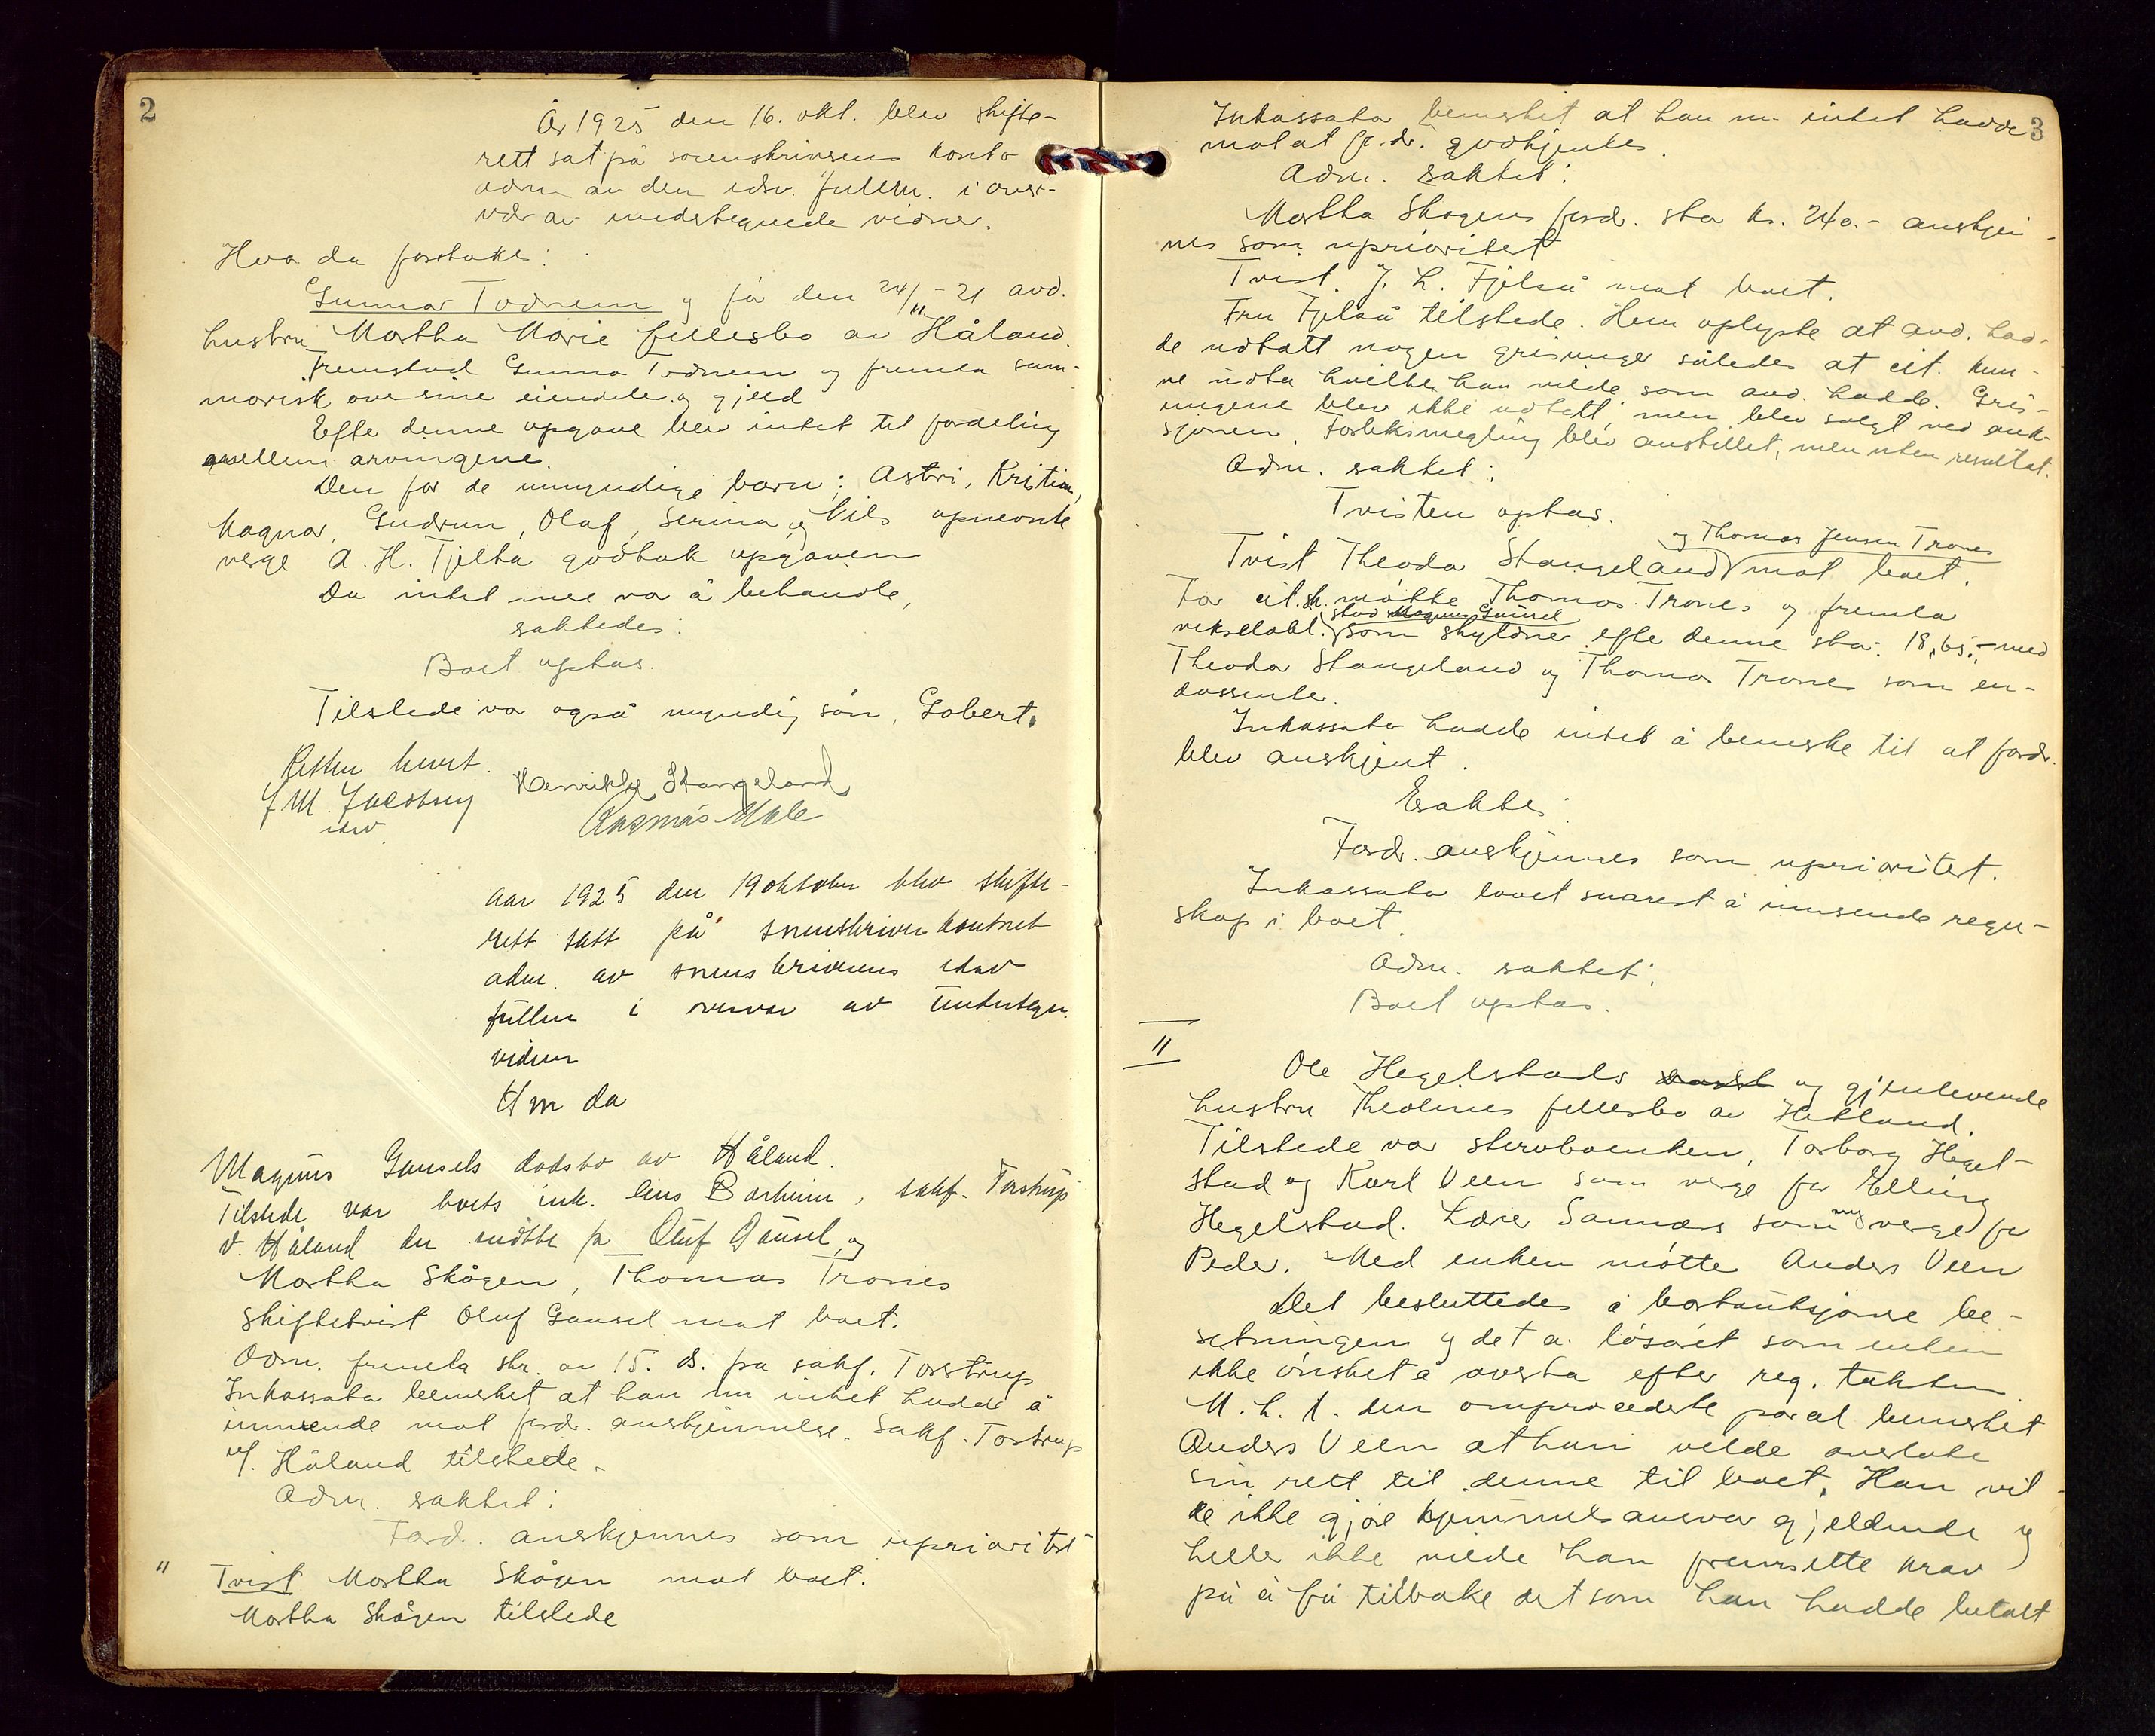 2
År 1925 den 16. okt. blev skifte-
rett sat på sorenskriverens kontor
adm av den edsv. fullm. i over-
vær av undertegnede vidner.
Hvor da foretokes:
Gunnar Todnem og før den 24/11-21 avd.
hustru Martha Marie fellesbo av Håland.
Fremstod Gunnar Todnem og fremla sum-
marisk over sine eiendeler og gjeld
Efter denne opgave blev intet til fordeling
mellem arvingene.
Den for de umyndige barn: Astri, Kristian,
Magnar, Gudrun, Olaf, Serina og Nils opnevnte
verge A. H. Tjelta godtok opgaven
Da intet mer var å behandle,
saktedes:
Boet optas.
Tilstede var også myndig sön, Gobert.
Retten hevet.
J M Jacobsen
edsv.
Henrikke Stangeland
Rasmus Mæle
Aar 1925 den 19 oktober blev skifte-
rett satt på sorenskriverkontoret
adm. av sorenskriverens edsv
fullm i overvær av undertegn.
vidner
Hvor da
Magnus Gausels dødsbo av Håland.
Tilstede var boets ink. lens Barheim, sakf. Torstrup
v. Håland der møtte for Oluf Gausel, og
Martha Skogen, Thomas Trones
Skiftetvist Oluf Gausel mot boet.
Adm. fremla skr. av 15. ds. fra sakf. Torstrup
Inkassator bemerket at han nu intet hadde å
innvende mot fordr. anerkjennelse. Sakf. Torstrup
v/ Håland tilstede.
Adm. saktet:
Ford. anerkjennes som uprioritert
" Tvist Martha Skogen mot boet.
Martha Skogen tilstede
3
Inkassator bemerket at han nu intet hadde
mot at fordr. godkjentes.
Adm. saktet:
Martha Skogens ford. stor kr. 240.- anerkjen-
nes som uprioritert
Tvist. J. L. Fjelså mot boet.
Fru Fjelså tilstede. Hun oplyste at avd. had-
de udtatt nogen grisunger således at cit. kun-
ne udta hvilke han vilde som avd. hadde. Gris-
ungene blev ikke udtatt, men blev solgt ved auk-
sjonen. Forliksmegling blev anstillet, men uten resultat.
Adm. saktet:
Tvisten optas.
og Thomas Jensen Trones
Tvist Theodor Stangeland mot boet.
For cit. møtte Thomas Trones og fremla
vekselobl. som skyldner efter denne stor: 18,65,- med
Theodor Stangeland og Thomas Trones som en-
dossenter.
Inkassator hadde intet å bemerke til at fordr.
blev anerkjent.
Saktes:
Fordr. anerkjennes som uprioritert.
Inkassator lovet snarest å innsende regn-
skap i boet.
Adm. saktet:
Boet optas.
II
Ole Hegelstads og gjenlevende
hustru Theolines fellesbo av Hetland.
Tilstede var stervboenken, Torborg Hegel-
stad og Karl Veen som verge for Elling
Hegelstad. Lærer Sannæs som ny verge for
Peder. Med enken møtte Anders Veen
Det besluttedes å bortauksjonere be-
setningen og det av løsøret som enken
ikke ønsket å overta efter reg. taksten
M. h. t. den omprocederte parsel bemerket
Anders Veen at han vilde overlate
sin rett til denne til boet. Han vil-
de ikke gjøre hjemmelsansvar gjeldende og
heller ikke vilde han fremsette krav
på å få tilbake det som han hadde betalt